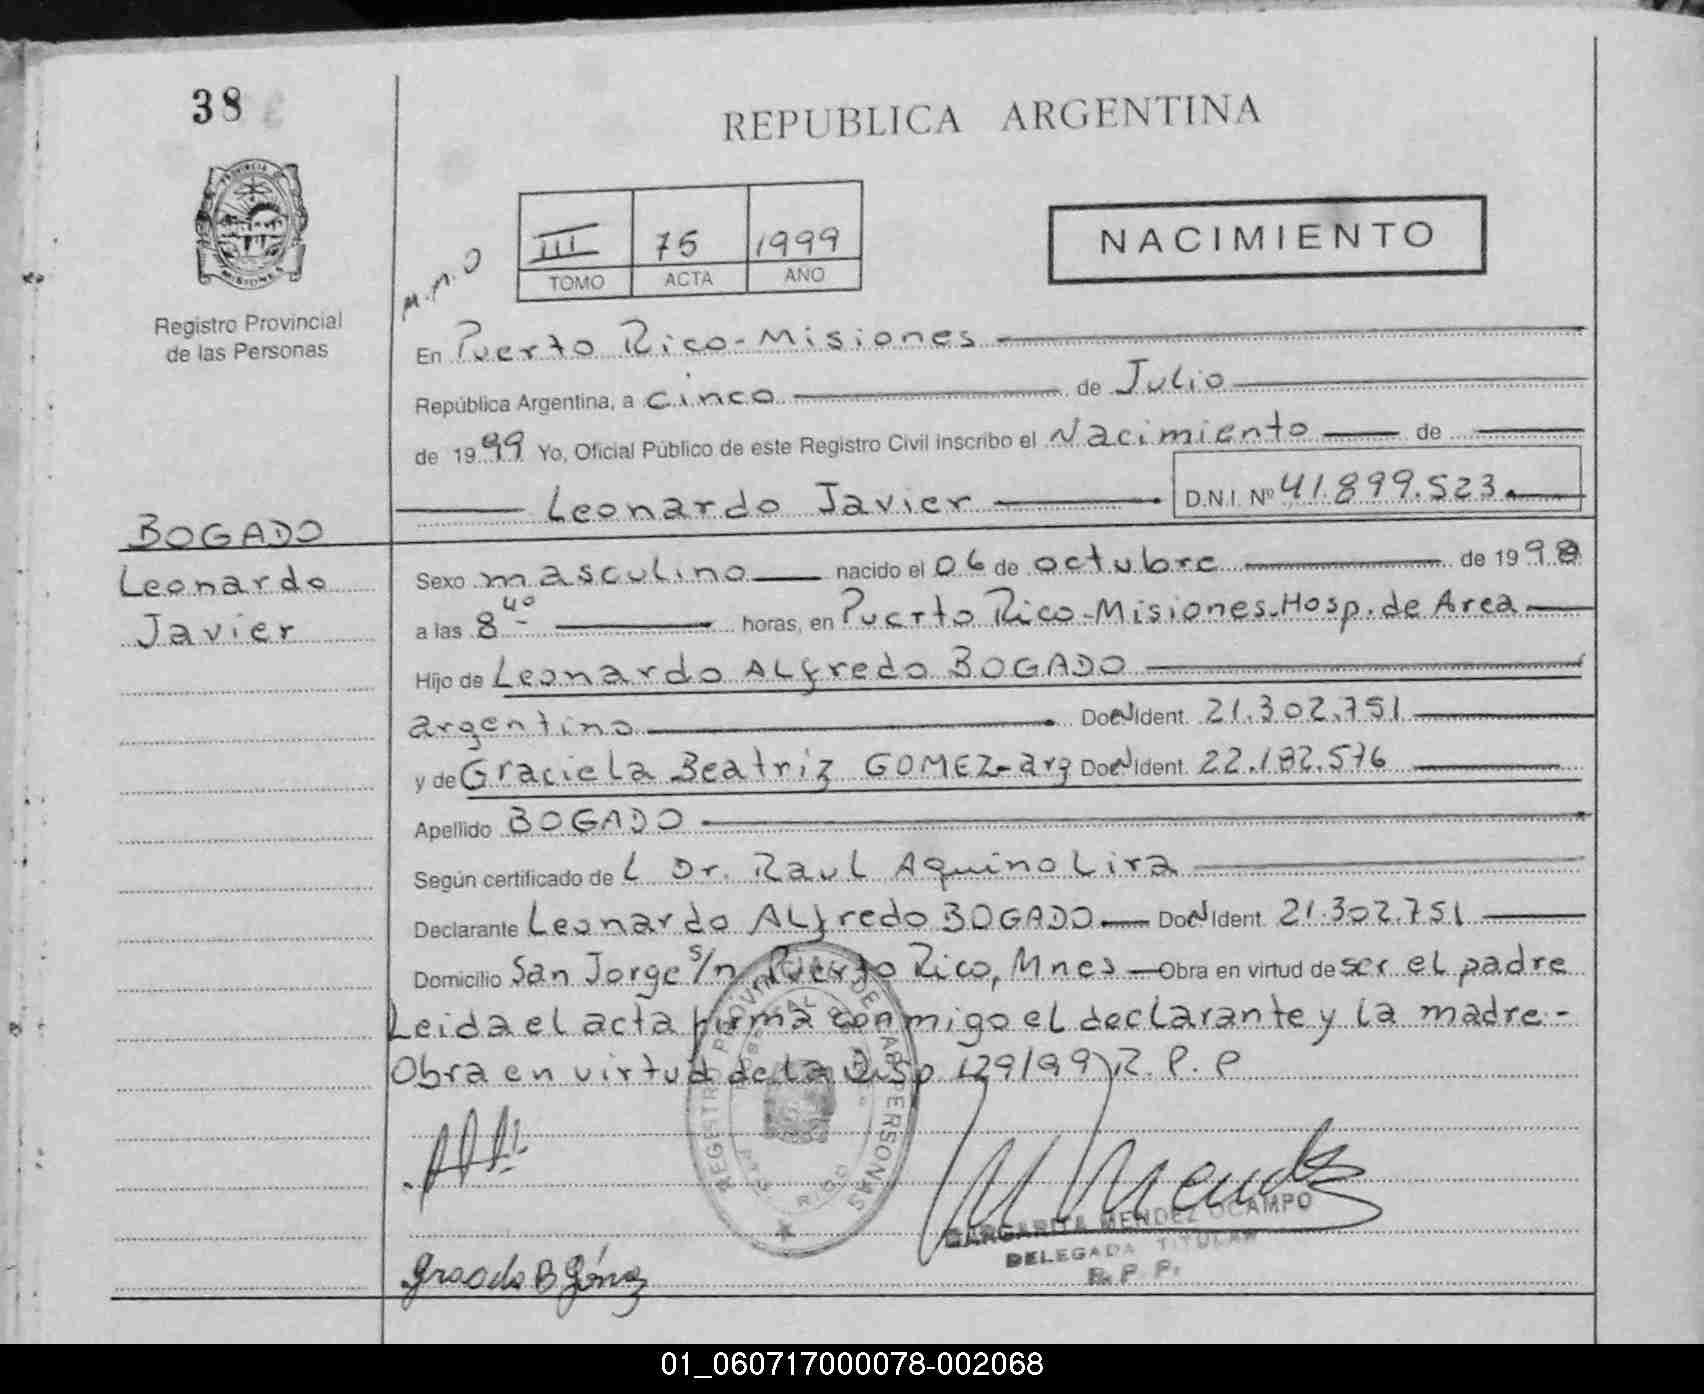 38
REPUBLICA ARGENTINA
PROVINCIA DE
MISIONES
Registro Provincial
de las Personas
III 75 1999
TOMO ACTA AÑO
NACIMIENTO
M.M.O
En Puerto Rico-Misiones
República Argentina, a cinco de Julio
de 1999 Yo, Oficial Público de este Registro Civil inscribo el Nacimiento de
Leonardo Javier D.N.I. Nº 41.899.523.
BOGADO
Leonardo
Javier
Sexo masculino nacido el 06 de octubre de 1998
a las 8 40 horas, en Puerto Rico-Misiones-Hosp. de Area
Hijo de Leonardo ALfredo BOGADO
argentino DocNIdent. 21.302.751
y de Graciela Beatriz GOMEZ-arg DocNIdent. 22.182.576
Apellido BOGADO
Según certificado de L Dr. Raul Aquino Lira
Declarante Leonardo ALfredo BOGADO DocNIdent. 21.302.751
Domicilio San Jorge s/n Puerto Rico, Mnes Obra en virtud de ser el padre
Leida el acta firma conmigo el declarante y la madre.-
Obra en virtud de la Disp 129/99 R.P.P
REGISTRO PROVINCIAL DE LAS PERSONAS
PTO. RICO
M Mendez
MARGARITA MENDEZ OCAMPO
DELEGADA TITULAR
R. P. P.
Graciela B Gómez
01_060717000078-002068